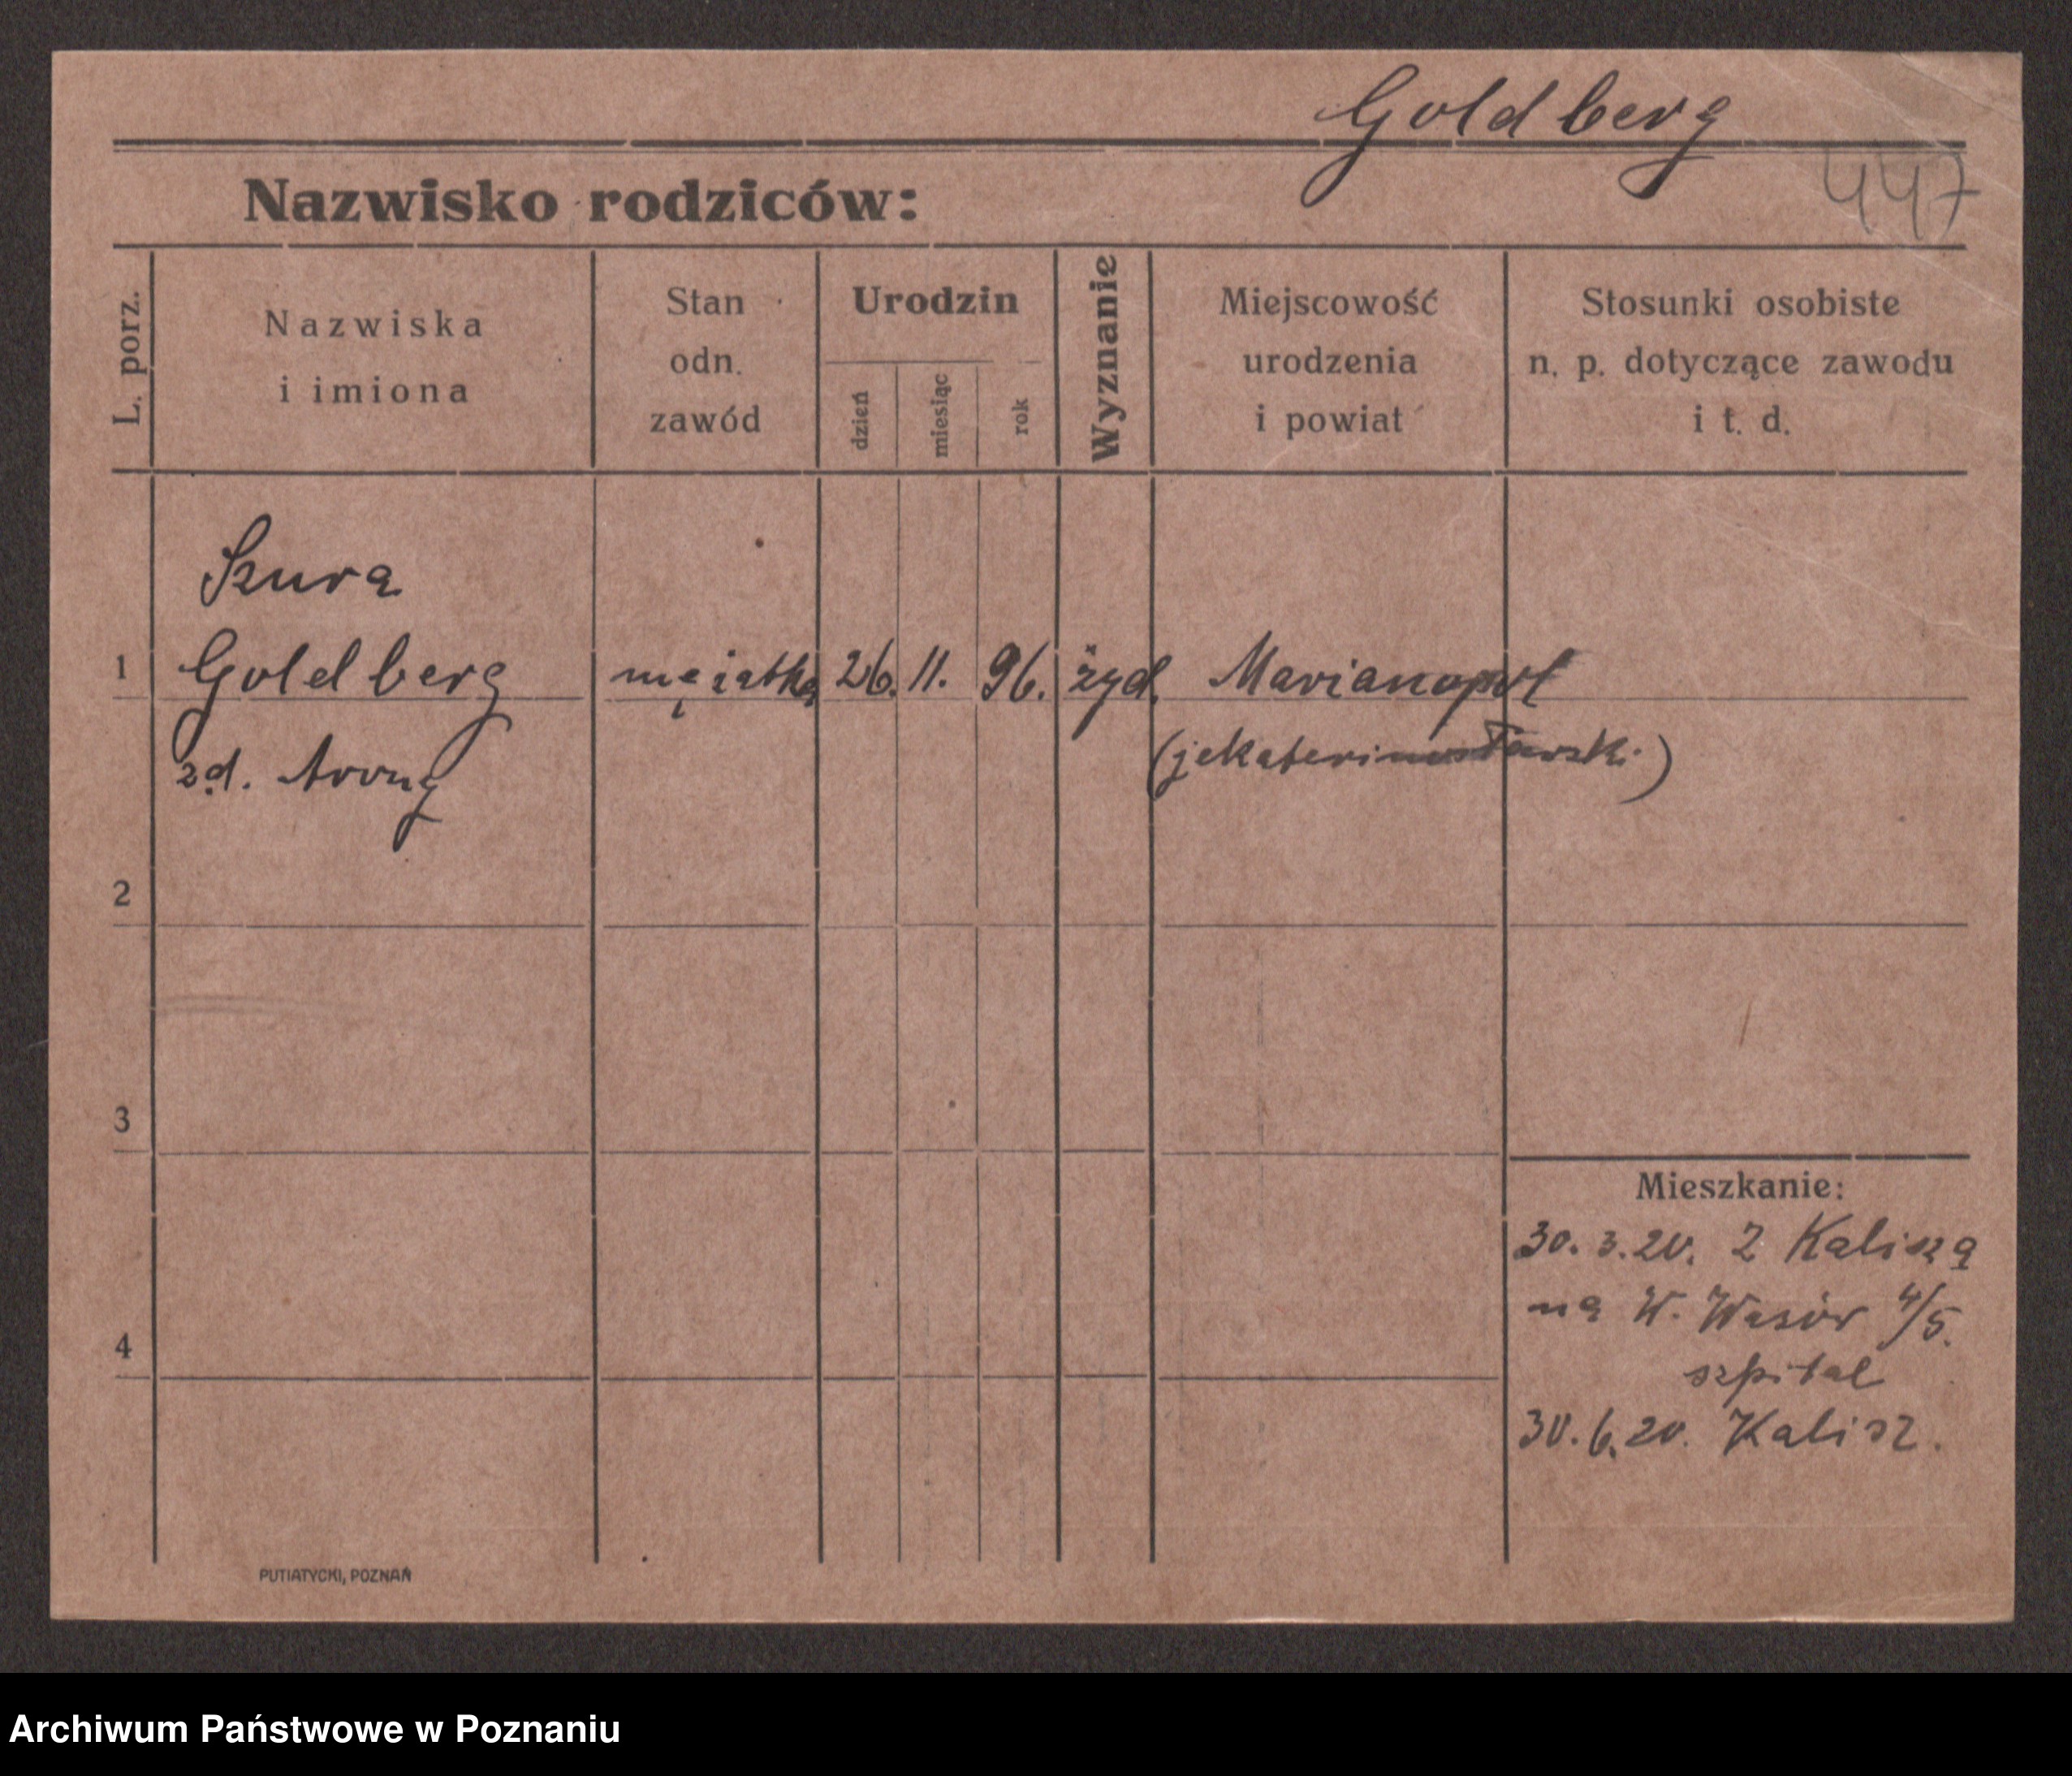 Goldberg
447
Nazwisko rodziców:
L. porz.
Nazwiska
i imiona
Stan
odn.
zawód
Urodzin
dzień
miesiąc
rok
Wyznanie
Miejscowość
urodzenia
i powiat
Stosunki osobiste
n. p. dotyczące zawodu
i t. d.
Szura
1 Goldberg mężatka 26. 11. 96. żyd. Marianopol
zd. Arony (jekaterinosławski)
2
3
4
Mieszkanie:
30.3.20. Z Kalisza
na W. 4/5.
szpital
30.6.20. Kalisz.
PUTIATYCKI, POZNAŃ
Archiwum Państwowe w Poznaniu